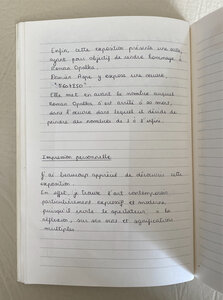 Enfin, cette exposition présente une œuvre
ayant pour objectif de rendre hommage à
Roman Opalka.
Damián Rope y expose une œuvre,
Elle met en avant le nombre auquel
Roman Opalka s'est arrêté à sa mort,
dans l'œuvre dans laquelle il décide de
peindre des nombres de 1 à l'infini.
Impression personnelle
J'ai beaucoup apprécié de découvrir cette
exposition.
En effet, je trouve l'art contemporain
particulièrement expressif et moderne,
puisqu'il invite le spectateur à la
réflexion, sur ses sens et significations
multiples.